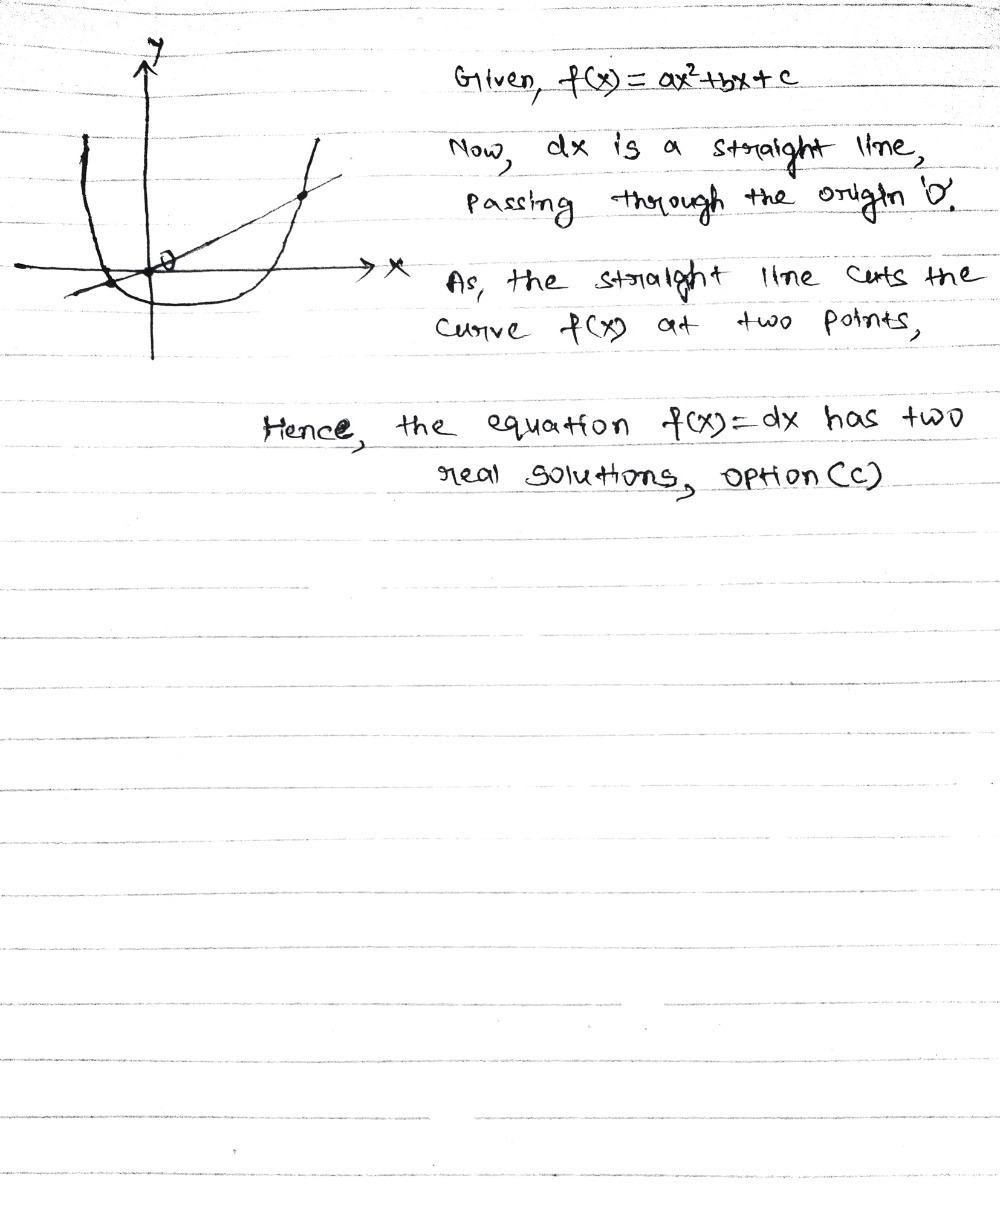 y
Given, f(x) = ax²+bx+c
Now, dx is a straight line,
passing through the origin 'O'.
O
x
As, the straight line cuts the
curve f(x) at two points,
Hence, the equation f(x)=dx has two
real solutions, option (c)